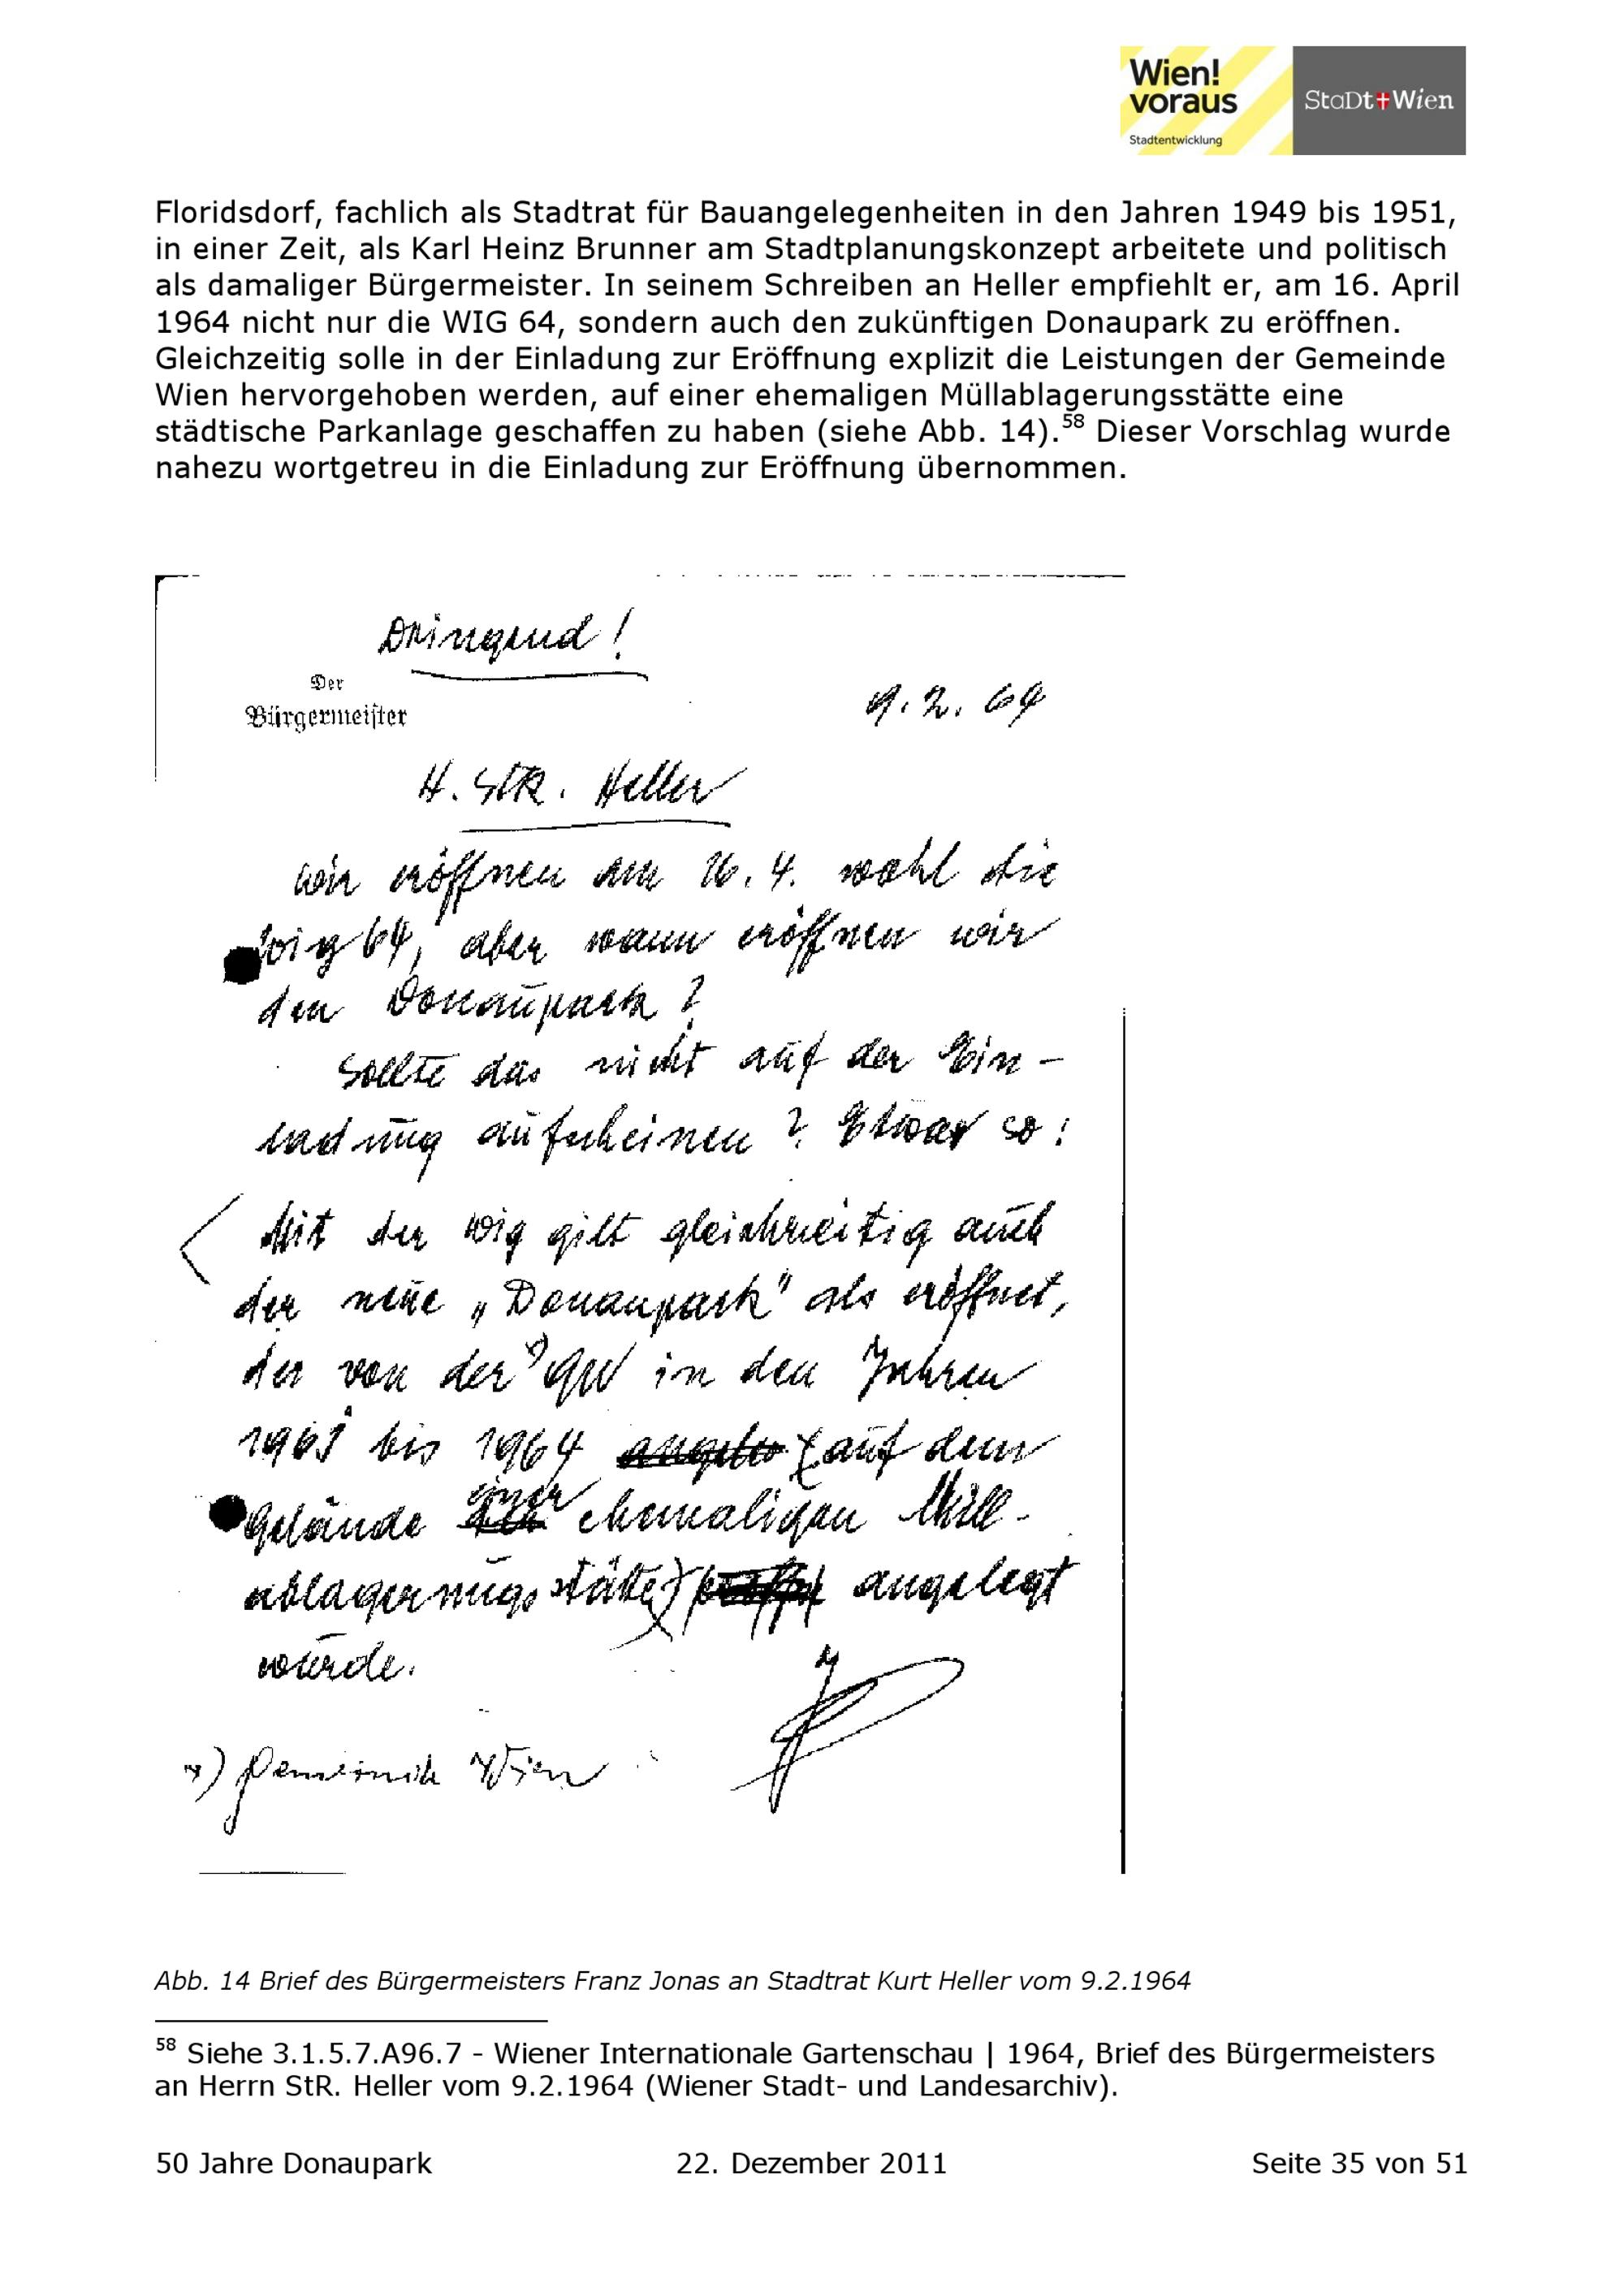 Wien!
voraus
Stadtentwicklung
StaDt Wien
Floridsdorf, fachlich als Stadtrat für Bauangelegenheiten in den Jahren 1949 bis 1951,
in einer Zeit, als Karl Heinz Brunner am Stadtplanungskonzept arbeitete und politisch
als damaliger Bürgermeister. In seinem Schreiben an Heller empfiehlt er, am 16. April
1964 nicht nur die WIG 64, sondern auch den zukünftigen Donaupark zu eröffnen.
Gleichzeitig solle in der Einladung zur Eröffnung explizit die Leistungen der Gemeinde
Wien hervorgehoben werden, auf einer ehemaligen Müllablagerungsstätte eine
städtische Parkanlage geschaffen zu haben (siehe Abb. 14).58 Dieser Vorschlag wurde
nahezu wortgetreu in die Einladung zur Eröffnung übernommen.
Dringend!
Der
Bürgermeister
9.2.64
H. StR. Heller
Wir eröffnen am 16.4. wohl die
Wig 64, aber wann eröffnen wir
den Donaupark?
Sollte das nicht auf der Ein-
ladung aufscheinen? Etwas so:
Mit der Wig gilt gleichzeitig auch
der neue „Donaupark" als eröffnet,
der von der GW in den Jahren
1961 bis 1964 (auf dem
Gelände einer ehemaligen Müll-
ablagerungsstätte) angelegt
wurde.
*) Gemeinde Wien
Abb. 14 Brief des Bürgermeisters Franz Jonas an Stadtrat Kurt Heller vom 9.2.1964
58 Siehe 3.1.5.7.A96.7 - Wiener Internationale Gartenschau | 1964, Brief des Bürgermeisters
an Herrn StR. Heller vom 9.2.1964 (Wiener Stadt- und Landesarchiv).
50 Jahre Donaupark 22. Dezember 2011 Seite 35 von 51